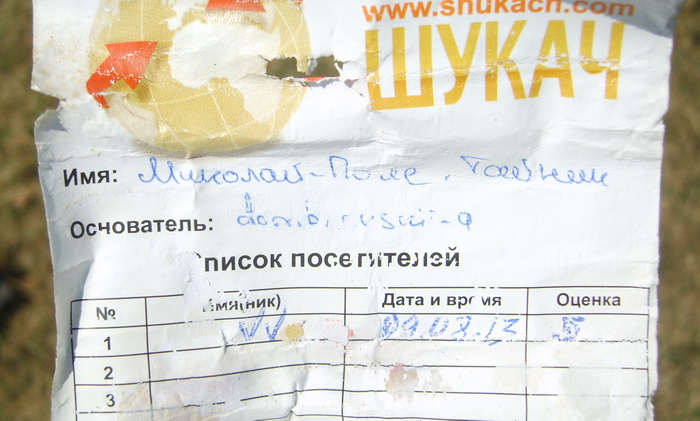 www.shukach.com
ШУКАЧ
Имя: Миколай-Поле. Тайник
Основатель:
Список посетителей
№ Имя(ник) Дата и время Оценка
1 VV 09.08.13 5
2
3